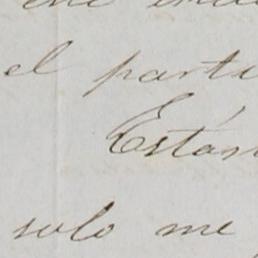 el parti
Están
solo me